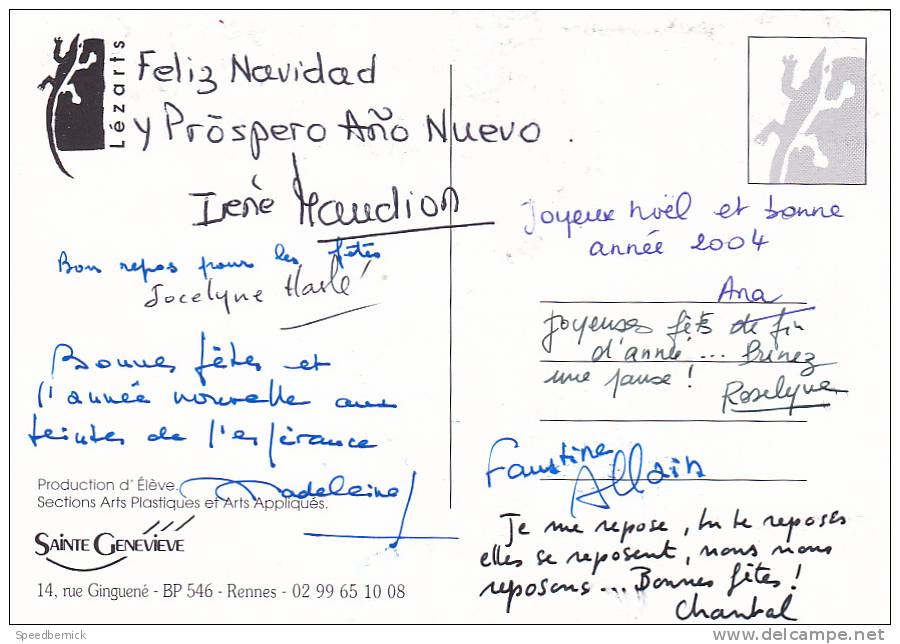 Lézarts
Feliz Navidad
y Pròspero Año Nuevo.
Irene Haudion
Bon repos pour les fêtes
Jocelyne Harlé
Bonnes fêtes et
l'année nouvelle aux
teintes de l'espérance
Madeleine
Production d'Élève.
Sections Arts Plastiques et Arts Appliqués.
SAINTE GENEVIEVE
14, rue Ginguené - BP 546 - Rennes - 02 99 65 10 08
Joyeux noël et bonne
année 2004
Ana
Joyeuses fêtes de fin
d'année... Prenez
une pause !
Roselyne
Faustine
Allain
Je me repose, tu te reposes
elles se reposent, nous nous
reposons... Bonnes fêtes !
Chantal
Speedbernick
www.delcampe.net